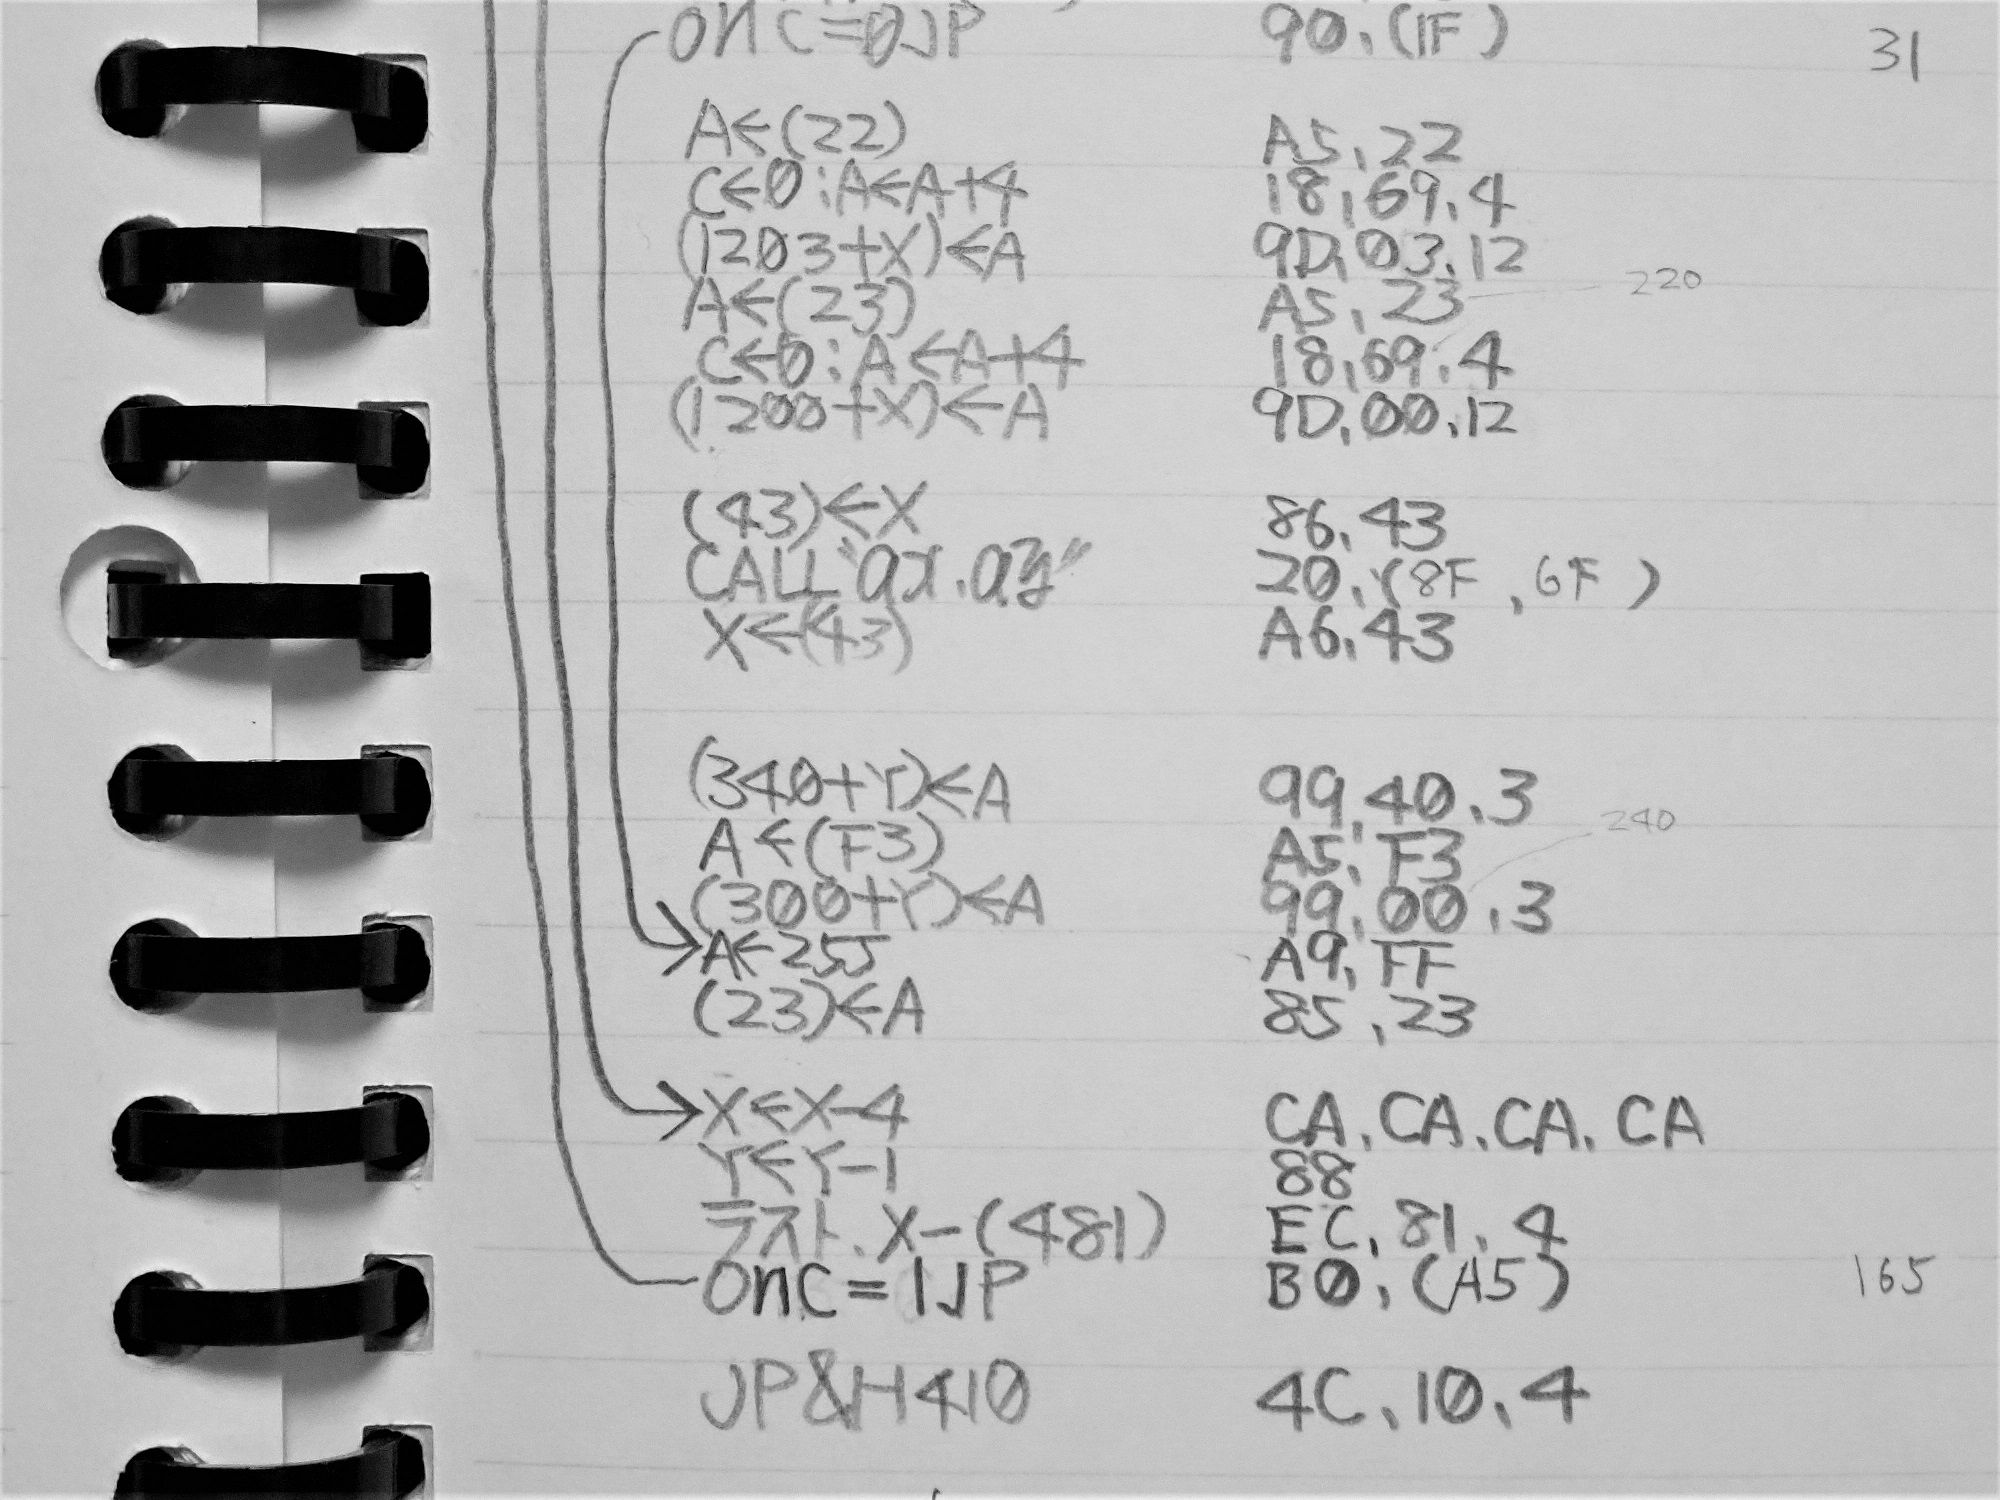 onC=0JP 90.(1F) 31
A←(22) A5.22
C←0:A←A+4 18.69.4
(1203+X)←A 9D.03.12
A←(23) A5.23 220
C←0:A←A+4 18.69.4
(1200+X)←A 9D.00.12
(43)←X 86.43
CALL"ax.ay" 20.(8F,6F)
X←(43) A6.43
(340+Y)←A 99.40.3
A←(F3) A5.F3 240
(300+Y)←A 99.00.3
A←255 A9.FF
(23)←A 85.23
X←X-4 CA.CA.CA.CA
Y←Y-1 88
テスト.X-(481) EC.81.4
onC=1JP B0.(A5) 165
JP&H410 4C.10.4